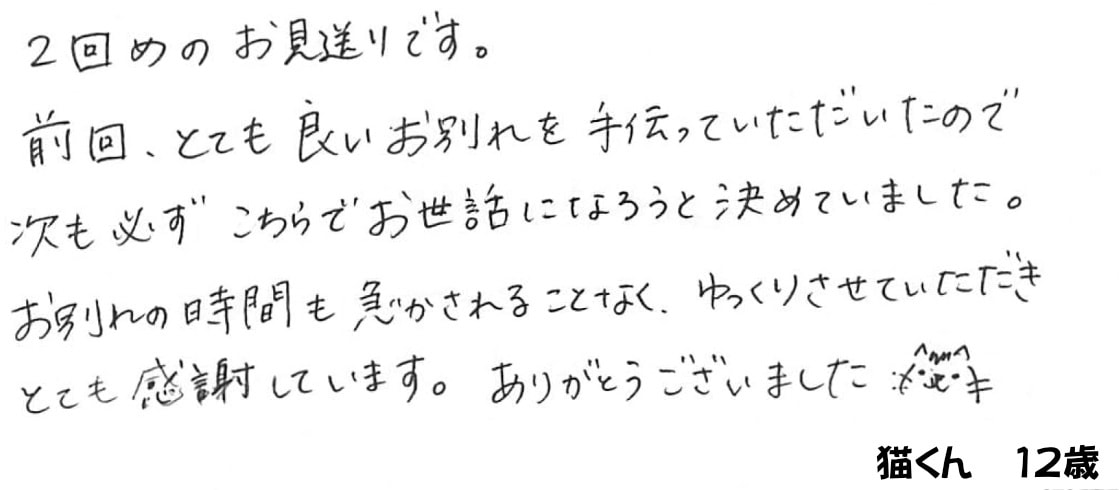 2回めのお見送りです。
前回、とても良いお別れを手伝っていただいたので
次も必ずこちらでお世話になろうと決めていました。
お別れの時間も急かされることなく、ゆっくりさせていただき
とても感謝しています。ありがとうございました
猫くん 12歳